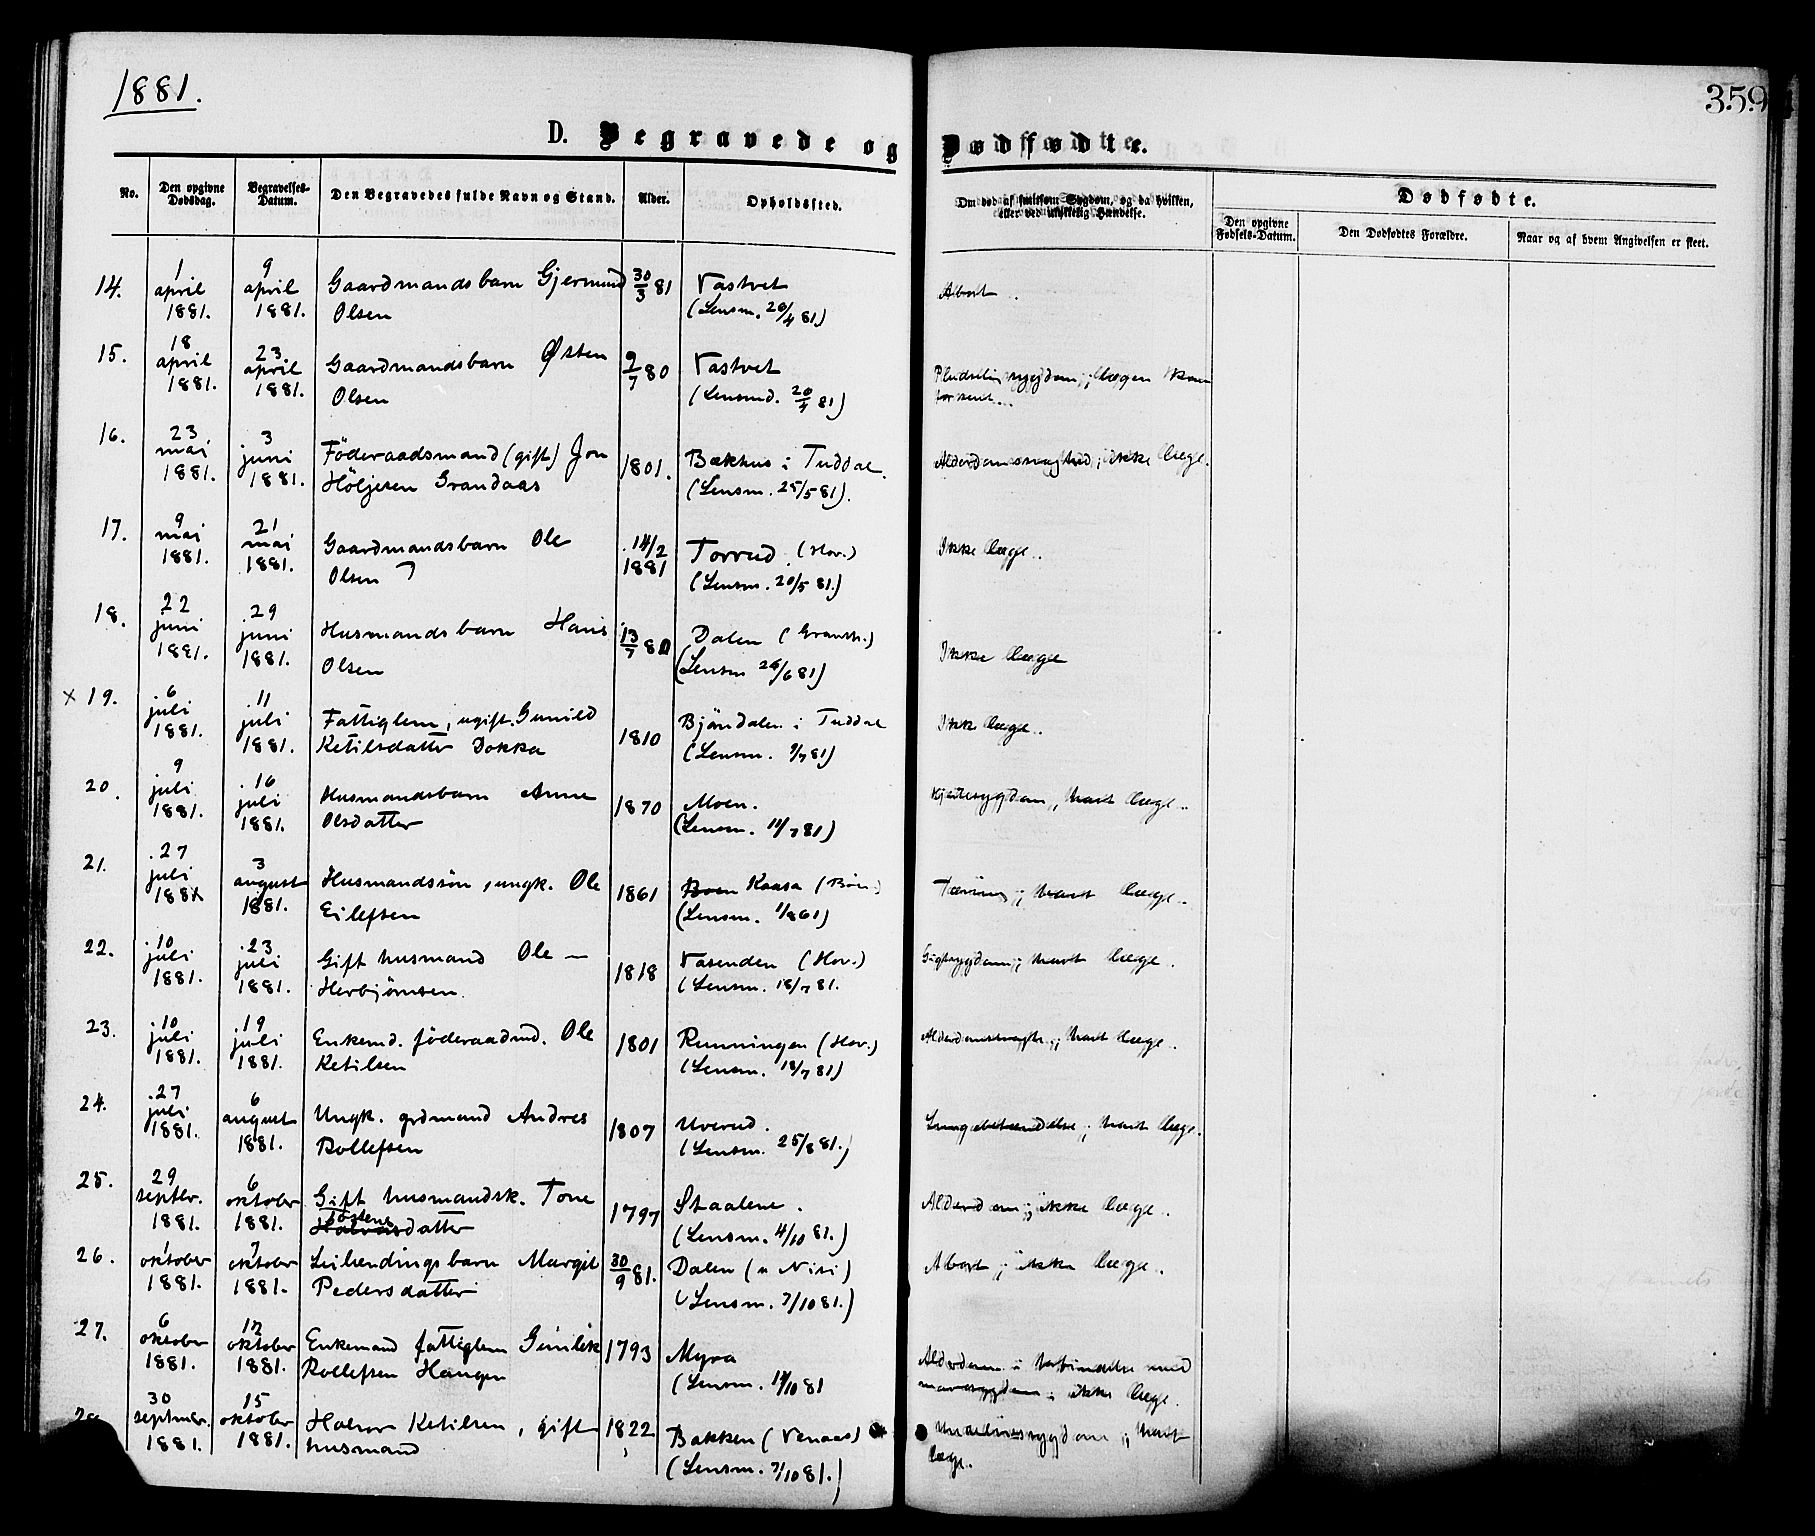 1881.
359
D. Begravede og Dødfødte.
No. Den opgivne Dødsdag. Begravelses-Datum. Den Begravedes fulde Navn og Stand. Alder. Opholdssted. Om død af smitsom Sygdom, og da hvilken, eller ved ulykkelig Hændelse. Dødfødte.
Den opgivne Fødsels-Datum. Den Dødfødtes Forældre. Naar og af hvem Angivelsen er skeet.
14. 1 april 1881. 9 april 1881. Gaardmandsbarn Gjermund 30/3 81 Vastvet
Olsen (Lensm. 20/4 81) Abort.
15. 18 april 1881. 23 april 1881. Gaardmandsbarn Østen 9/7 80 Vastvet
Olsen (Lensmd. 20/4 81) Pludselig sygdom; lægen kom for sent.
16. 23 mai 1881. 3 juni 1881. Föderaadsmand (gift) Jon 1801. Bækhus i Tuddal.
Höljesen Grandaas (Lensm. 25/5 81). Alderdomssvaghed; ikke læge.
17. 9 mai 1881. 21 mai 1881. Gaardmandsbarn Ole 14/2 1881 Torrud. (Hov.)
Olsen (Lensm. 20/5 81.) Ikke læge.
18. 22 juni 1881. 29 juni 1881. Husmandsbarn Hans 13/7 80 Dalen (Gransh.)
Olsen (Lensm 26/6 81) Ikke læge
x 19. 6 juli 1881. 11 juli 1881. Fattiglem, ugift. Gunild 1810 Bjöndalen i Tuddal
Ketilsdatter Dokka (Lensm. 9/7 81) Ikke læge.
20. 9 juli 1881. 16 juli 1881. Husmandsbarn Anne 1870 Moen.
Olsdatter (Lensm. 11/7 81) Hjertesygdom, havt læge.
21. 27 juli 1881 3 august 1881. Husmandssön, ungk. Ole 1861 Boen Kaasa (Böen)
Eilefsen (Lensm. 1/8 61) Tæring; havt læge.
22. 10 juli 1881. 23 juli 1881. Gift husmand Ole — 1818 Vasenden (Hov.)
Herbjörnsen. (Lensm. 18/7 81. Gigtsygdom; havt læge.
23. 10 juli 1881. 19 juli 1881. Enkemd. föderaadmd. Ole 1801 Runningen (Hov.)
Ketilsen (Lensm. 18/7 81) Alderdomssvagh.; havt læge.
24. 27 juli 1881. 6 august 1881. Ungk. grdmand Andres 1807 Uverud.
Rollefsen (Lensm. 25/8 81.) Lungebetændelse; havt læge.
25. 29 septbr. 1881. 6 oktober 1881. Gift husmandsk. Tone 1797 Staalene.
Halvorsdatter (Lensm. 4/10 81.) Alderdom; ikke læge.
26. 1 oktober 1881. 7 oktober 1881. Leilendingsbarn Margit 30/9 81. Dalen (u Nisi)
Pedersdatter (Lensm. 7/10 81.) Abort; ikke læge.
27. 6 oktober 1881. 12 oktober 1881. Enkemand fattiglem Gunlik 1793 Myra
Rollefsen Haugen (Lensm. 14/10 81 Alderdom i forbindelse med
mavesygdom; ikke læge.
30 septmbr. 1881. 15 oktober 1881. Halvor Ketilsen, gift 1822 Bakken (Venaas)
husmand (Lensm. 7/10 81.) havt
læge.